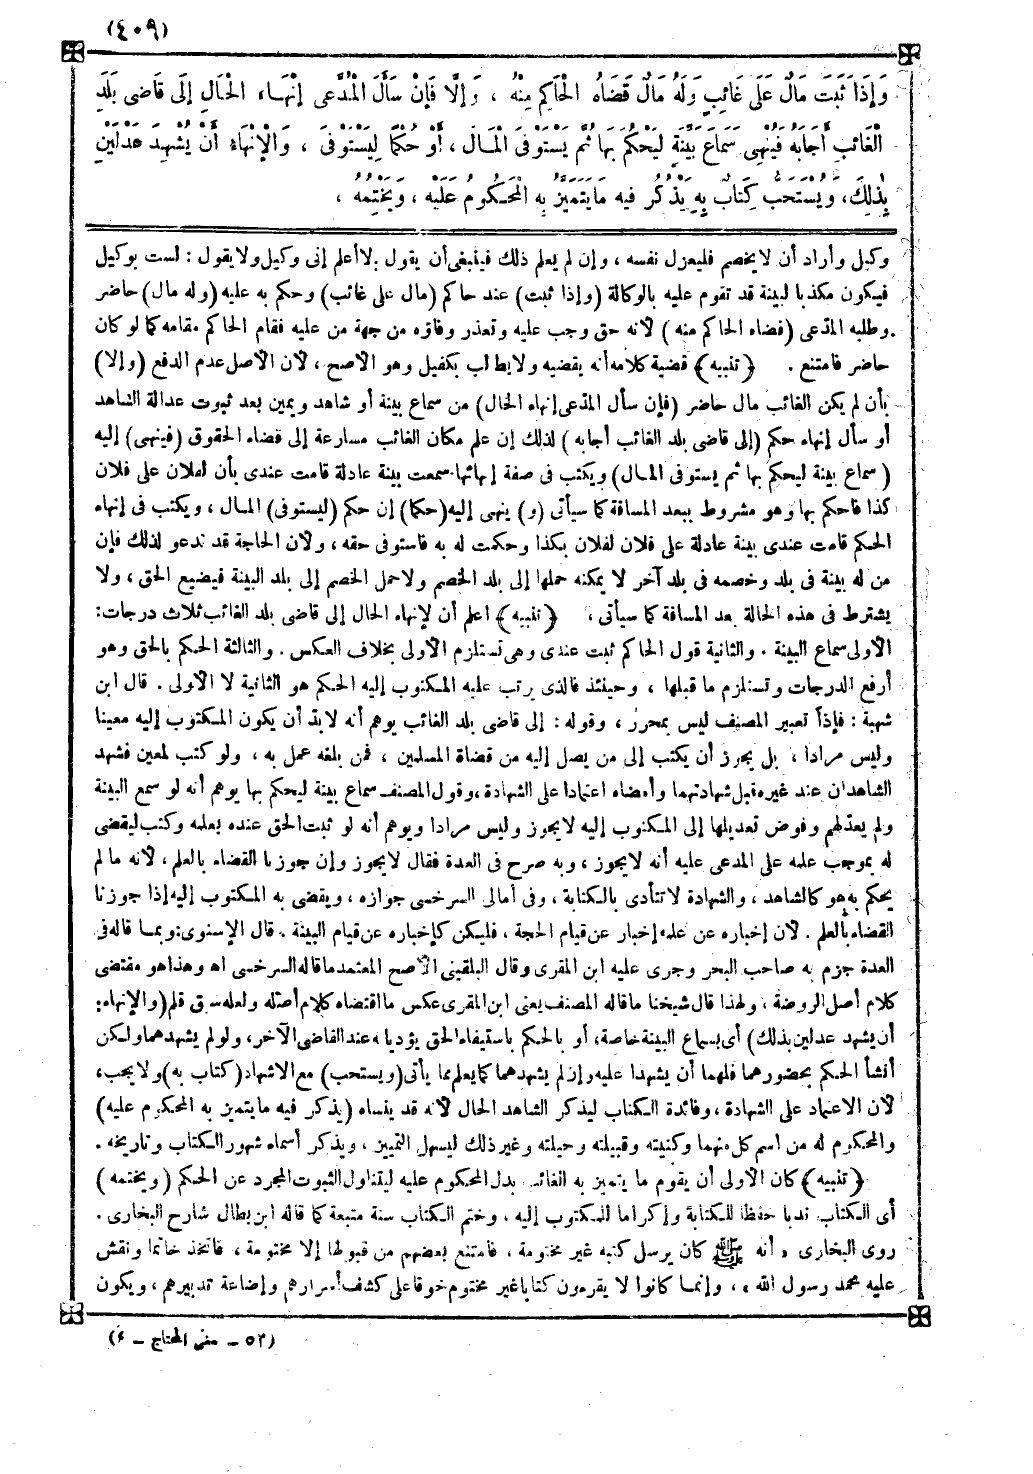 (٤٠٩)
وَإِذَا ثَبَتَ مَالٌ عَلَى غَائِبٍ وَلَهُ مَالٌ قَضَاهُ الْحَاكِمُ مِنْهُ ، وَإِلَّا فَإِنْ سَأَلَ الْمُدَّعِى إِنْهَاءَ الْحَالِ إِلَى قَاضِى بَلَدِ
الْغَائِبِ أَجَابَهُ فَيُنْهِى سَمَاعَ بَيِّنَةٍ لِيَحْكُمَ بِهَا ثُمَّ يَسْتَوْفِىَ الْمَالَ ، أَوْ حُكْمًا لِيَسْتَوْفِىَ ، وَالْإِنْهَاءُ أَنْ يُشْهِدَ عَدْلَيْنِ
بِذٰلِكَ، وَيُسْتَحَبُّ كِتَابٌ بِهِ يَذْكُرُ فِيهِ مَا يَتَمَيَّزُ بِهِ الْمَحْكُومُ عَلَيْهِ ، وَيَخْتِمُهُ ،
وكيل وأراد أن لا يخصم فليعزل نفسه ، وإن لم يعلم ذلك فينبغى أن يقول بلا أعلم إنى وكيل ولا يقول : لست بوكيل
فيكون مكذبا لبينة قد تقوم عليه بالوكالة (وإذا ثبت) عند حاكم (مال على غائب) وحكم به عليه (وله مال) حاضر
وطلبه المدّعى (قضاه الحاكم منه) لأنه حق وجب عليه وتعذر وفاؤه من جهة من عليه فقام الحاكم مقامه كما لو كان
حاضر فامتنع . ﴿تنبيه﴾ قضية كلامه أنه يقضيه ولا يطالب بكفيل وهو الأصح ، لأن الأصل عدم الدفع (وإلا)
بأن لم يكن للغائب مال حاضر (فإن سأل المدّعى إنهاء الحال) من سماع بينة أو شاهد ويمين بعد ثبوت عدالة الشاهد
أو سأل إنهاء حكم (إلى قاضى بلد الغائب أجابه) لذلك إن علم مكان الغائب مسارعة إلى قضاء الحقوق (فينهى) إليه
(سماع بينة ليحكم بها ثم يستوفى المال) ويكتب فى صفة إنهائها سمعت بينة عادلة قامت عندى بأن لفلان على فلان
كذا فاحكم بها وهو مشروط ببعد المسافة كما سيأتى (و) ينهى إليه (حكما) إن حكم (ليستوفى) المال ، ويكتب فى إنهاء
الحكم قامت عندى بينة عادلة على فلان لفلان بكذا وحكمت له به فاستوفى حقه ، ولأن الحاجة قد تدعو لذلك فإن
من له بينة فى بلد وخصمه فى بلد آخر لا يمكنه حملها إلى بلد الخصم ولا حمل الخصم إلى بلد البينة فيضيع الحق ، ولا
يشترط فى هذه الحالة بعد المسافة كما سيأتى ، ﴿تنبيه﴾ اعلم أن لإنهاء الحال إلى قاضى بلد الغائب ثلاث درجات:
الأولى سماع البينة . والثانية قول الحاكم ثبت عندى وهى تستلزم الأولى بخلاف العكس . والثالثة الحكم بالحق وهو
أرفع الدرجات وتستلزم ما قبلها ، وحينئذ فالذى يرتب عليه المكتوب إليه الحكم هو الثانية لا الأولى . قال ابن
شهبة : فإذاً تعبير المصنف ليس بمحرر ، وقوله : إلى قاضى بلد الغائب يوهم أنه لا بدّ أن يكون المكتوب إليه معينا
وليس مرادا ، بل يجوز أن يكتب إلى من يصل إليه من قضاة المسلمين ، فمن بلغه عمل به ، ولو كتب لمعين فشهد
الشاهدان عند غيره قبل شهادتهما وأمضاه اعتمادا على الشهادة ، وقول المصنف سماع بينة ليحكم بها يوهم أنه لو سمع البينة
ولم يعدّلهم وفوض تعديلها إلى المكتوب إليه لا يجوز وليس مرادا ويوهم أنه لو ثبت الحق عنده بعلمه وكتب ليقضى
له بموجب علمه على المدعى عليه أنه لا يجوز ، وبه صرح فى العدة فقال لا يجوز وإن جوزنا القضاء بالعلم ، لأنه ما لم
يحكم به هو كالشاهد ، والشهادة لا تتأدى بالكتابة ، وفى أمالى السرخسى جوازه ، ويقضى به المكتوب إليه إذا جوزنا
القضاء بالعلم . لأن إخباره عن علمه إخبار عن قيام الحجة ، فليكن كإخباره عن قيام البينة . قال الإسنوى: وبما قاله فى
العدة جزم به صاحب البحر وجرى عليه ابن المقرى وقال البلقينى الأصح المعتمد ما قاله السرخسى اه وهذا هو مقتضى
كلام أصل الروضة ، ولهذا قال شيخنا ما قاله المصنف يعنى ابن المقرى عكس ما اقتضاه كلام أصله ولعله سبق قلم (والإنهاء:
أن يشهد عدلين بذلك) أى بسماع البينة خاصة، أو بالحكم باستيفاء الحق يؤديانه عند القاضى الآخر، ولو لم يشهدهما ولكن
أنشأ الحكم بحضورهما فلهما أن يشهدا عليه وإن لم يشهدهما كما يعلم مما يأتى (ويستحب) مع الاشهاد (كتاب به) ولا يجب،
لأن الاعتماد على الشهادة ، وفائدة الكتاب ليذكر الشاهد الحال لأنه قد ينساه (يذكر فيه ما يتميز به المحكوم عليه)
والمحكوم له من اسم كل منهما وكنيته وقبيلته وحيلته وغير ذلك ليسهل التمييز ، ويذكر أسماء شهور الكتاب وتاريخه .
﴿تنبيه﴾ كان الأولى أن يقوم ما يتميز به الغائب بدل المحكوم عليه ليتناول الثبوت المجرد عن الحكم (ويختمه)
أى الكتاب ندبا حفظا للكتابة وإكراما للمكتوب إليه ، وختم الكتاب سنة متبعة كما قاله ابن بطال شارح البخارى .
روى البخارى «أنه ﷺ كان يرسل كتبه غير مختومة ، فامتنع بعضهم من قبولها إلا مختومة ، فاتخذ خاتما ونقش
عليه محمد رسول الله» ، وإنما كانوا لا يقرءون كتابا غير مختوم خوفا على كشف أسرارهم وإضاعة تدبيرهم ، ويكون
(٥٢ - مغنى المحتاج - ٤)